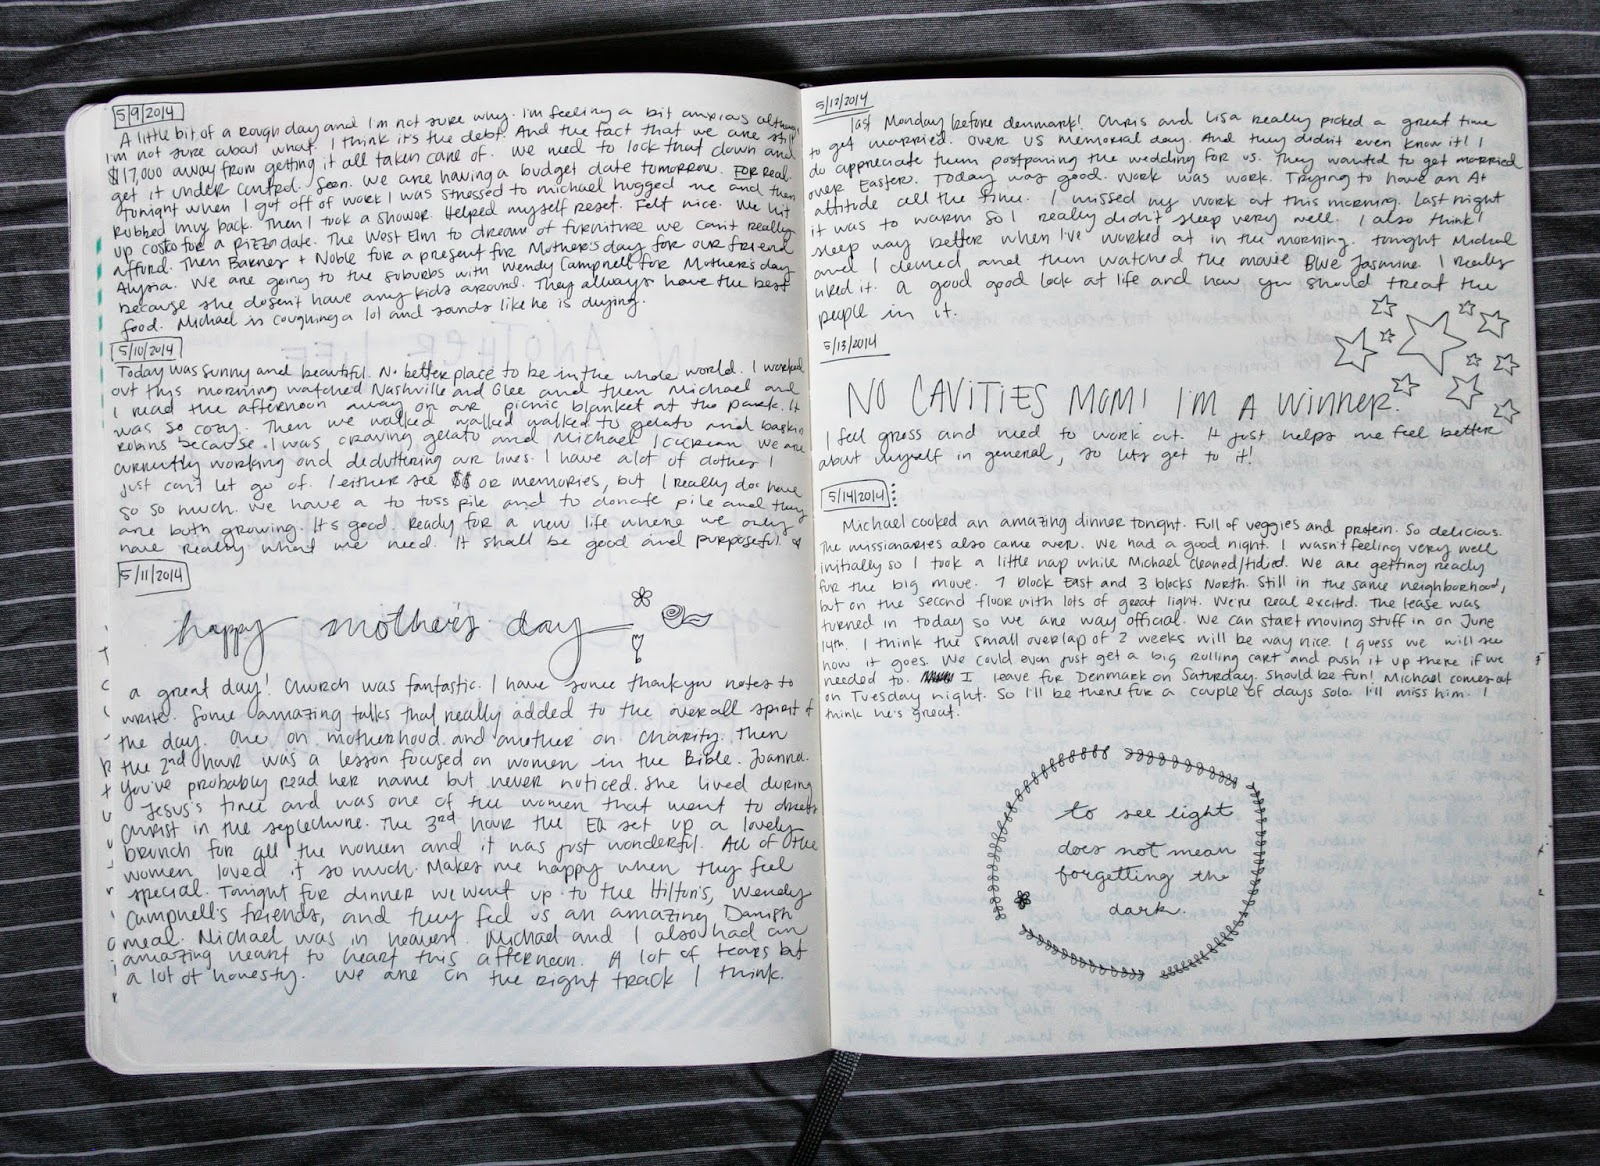 5/9/2014
A little bit of a rough day and I'm not sure why. I'm feeling a bit anxious although
I'm not sure about what. I think it's the debt. And the fact that we are still
$17,000 away from getting it all taken care of. We need to lock that down and
get it under control. Soon. We are having a budget date tomorrow. FOR REAL.
Tonight when I got off of work I was stressed to michael hugged me and then
rubbed my back. Then I took a shower. Helped myself reset. Felt nice. We hit
up costco for a pizza date. The West Elm to dream of furniture we can't really
afford. Then Barnes + Noble for a present for Mother's day for our friend
Alyssa. We are going to the suburbs with Wendy Campnell for Mother's day
because she doesn't have any kids around. They always have the best
food. Michael is coughing a lot and sounds like he is dying.
5/10/2014
Today was sunny and beautiful. No better place to be in the whole world. I worked
out this morning watched Nashville and Glee and then Michael and
I read the afternoon away on our picnic blanket at the park. It
was so cozy. Then we walked walked walked to gelato and baskin
robins because I was craving gelato and Michael icecream. We are
currently working and decluttering our lives. I have a lot of clothes I
just can't let go of. I either see $$ or memories, but I really do have
so so much. We have a to toss pile and to donate pile and they
are both growing. It's good. Ready for a new life where we only
have really what we need. It shall be good and purposeful.
5/11/2014
happy mother's day
a great day! Church was fantastic. I have some thank you notes to
write. Some amazing talks that really added to the overall spirit of
the day. One on motherhood and another on charity. Then
the 2nd hour was a lesson focused on women in the Bible. Joanna.
You've probably read her name but never noticed. She lived during
Jesus's time and was one of the women that went to dress
Christ in the seplechure. The 3rd hour the EQ set up a lovely
brunch for all the women and it was just wonderful. All of the
women loved it so much. Makes me happy when they feel
special. Tonight for dinner we went up to the Hilton's, Wendy
Campnell's friends, and they fed us an amazing Danish
meal. Michael was in heaven. Michael and I also had an
amazing heart to heart this afternoon. A lot of tears but
a lot of honesty. We are on the right track I think.
5/12/2014
last Monday before denmark! Chris and Lisa really picked a great time
to get married. Over US memorial day. And they didn't even know it! I
do appreciate them postponing the wedding for us. They wanted to get married
over Easter. Today was good. Work was work. Trying to have an A+
attitude all the time. I missed my work out this morning. Last night
it was to warm so I really didn't sleep very well. I also think I
sleep way better when I've worked out in the morning. Tonight Michael
and I cleaned and then watched the movie Blue Jasmine. I really
liked it. A good good look at life and how you should treat the
people in it.
5/13/2014
NO CAVITIES MOM! I'M A WINNER.
I feel gross and need to work out. It just helps me feel better
about myself in general, so lets get to it!
5/14/2014
Michael cooked an amazing dinner tonight. Full of veggies and protein. So delicious.
The missionaries also came over. We had a good night. I wasn't feeling very well
initially so I took a little nap while Michael cleaned/tidied. We are getting ready
for the big move. 1 block East and 3 blocks North. Still in the same neighborhood,
but on the second floor with lots of great light. We're real excited. The lease was
turned in today so we are way official. We can start moving stuff in on June
14th. I think the small overlap of 2 weeks will be way nice. I guess we will see
how it goes. We could even just get a big rolling cart and push it up there if we
needed to. I leave for Denmark on Saturday. Should be fun! Michael comes out
on Tuesday night. So I'll be there for a couple of days solo. I'll miss him. I
think he's great.
to see light
does not mean
forgetting the
dark.